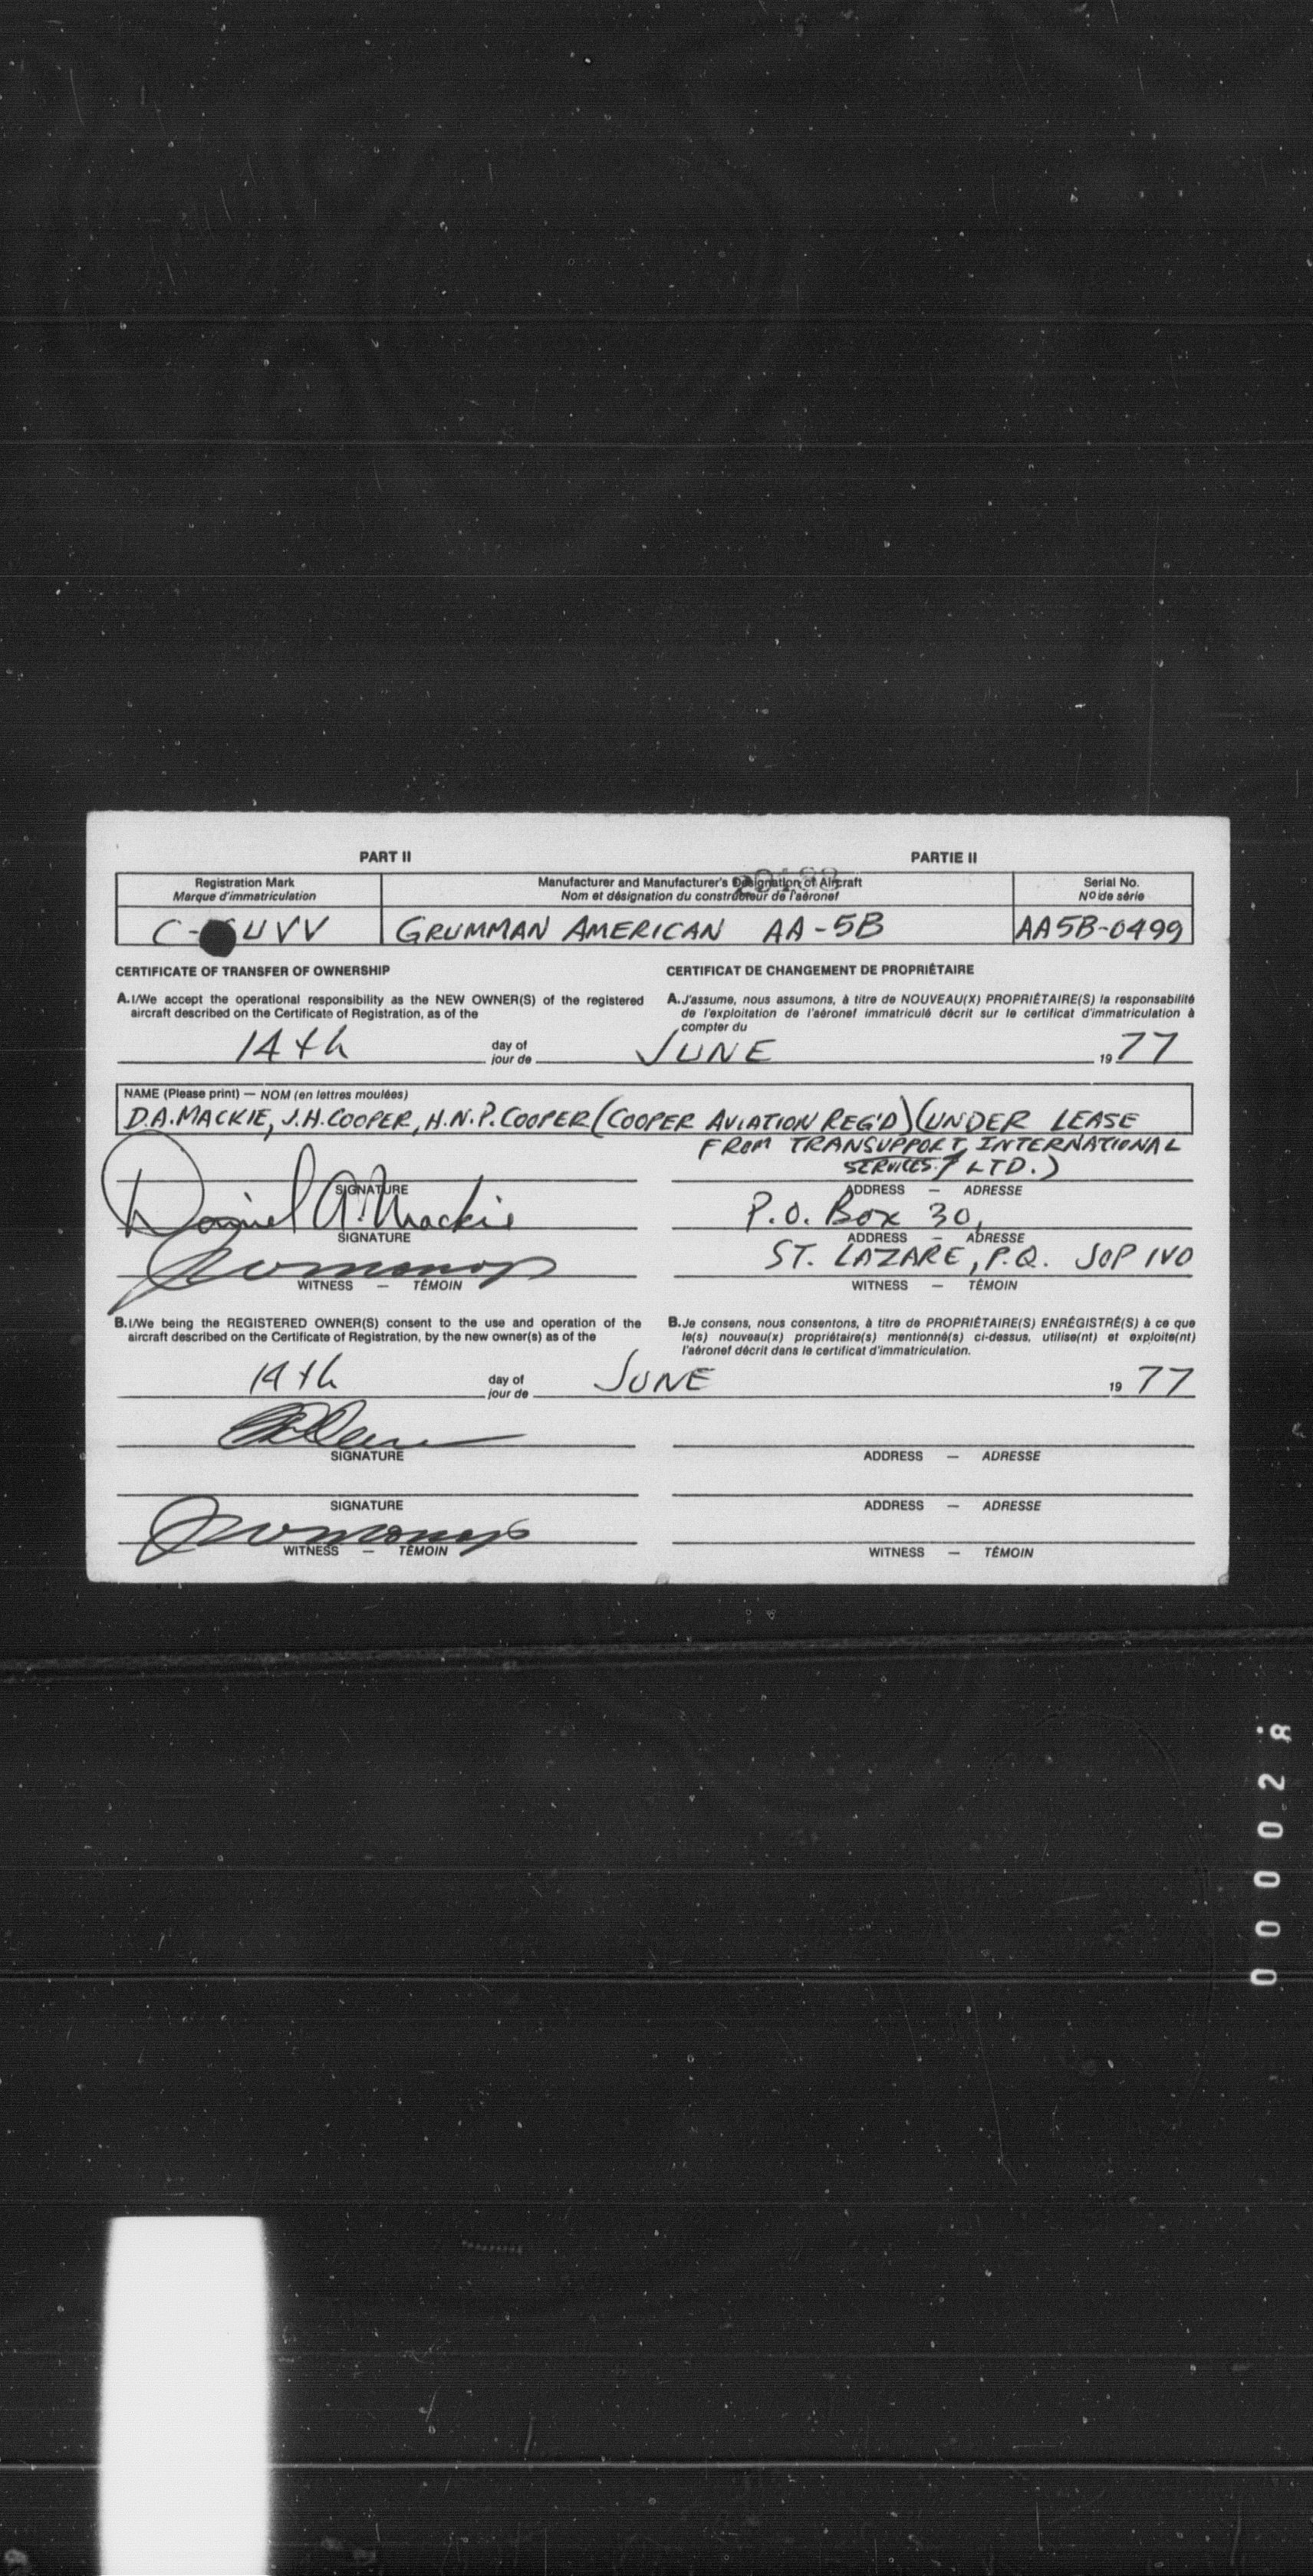 PART II PARTIE II
Registration Mark Manufacturer and Manufacturer's Designation of Aircraft Serial No.
Marque d'immatriculation Nom et désignation du constructeur de l'aéronef Nº de série
C- UVV GRUMMAN AMERICAN AA-5B AA5B-0499
CERTIFICATE OF TRANSFER OF OWNERSHIP
A. I/We accept the operational responsibility as the NEW OWNER(S) of the registered
aircraft described on the Certificate of Registration, as of the
CERTIFICAT DE CHANGEMENT DE PROPRIÉTAIRE
A. J'assume, nous assumons, à titre de NOUVEAU(X) PROPRIÉTAIRE(S) la responsabilité
de l'exploitation de l'aéronef immatriculé décrit sur le certificat d'immatriculation à
compter du
14th day of JUNE 1977
jour de
NAME (Please print) — NOM (en lettres moulées)
D.A. MACKIE, J.H. COOPER, H.N.P. COOPER (COOPER AVIATION REG'D) (UNDER LEASE
FROM TRANSUPPORT INTERNATIONAL
SERVICES LTD.)
SIGNATURE ADDRESS — ADRESSE
Daniel A. Mackie P.O. Box 30,
SIGNATURE ADDRESS — ADRESSE
ST. LAZARE, P.Q. J0P 1V0
WITNESS — TÉMOIN WITNESS — TÉMOIN
B. I/We being the REGISTERED OWNER(S) consent to the use and operation of the
aircraft described on the Certificate of Registration, by the new owner(s) as of the
B. Je consens, nous consentons, à titre de PROPRIÉTAIRE(S) ENRÉGISTRÉ(S) à ce que
le(s) nouveau(x) propriétaire(s) mentionné(s) ci-dessus, utilise(nt) et exploite(nt)
l'aéronef décrit dans le certificat d'immatriculation.
14th day of JUNE 1977
jour de
SIGNATURE ADDRESS — ADRESSE
SIGNATURE ADDRESS — ADRESSE
WITNESS — TÉMOIN WITNESS — TÉMOIN
000028